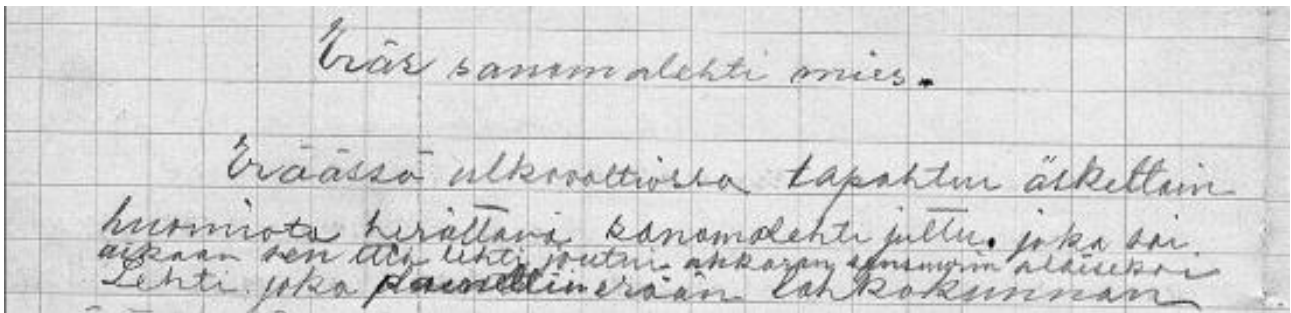 Eräs sanomalehti mies.
Eräässä ulkovaltiossa tapahtui äskettäin
huomiota herättävä sanomalehti juttu. joka sai
aikaan sen että lehti joutui ankaran sensuurin alaiseksi
Lehti joka painettiin erään lahkokunnan